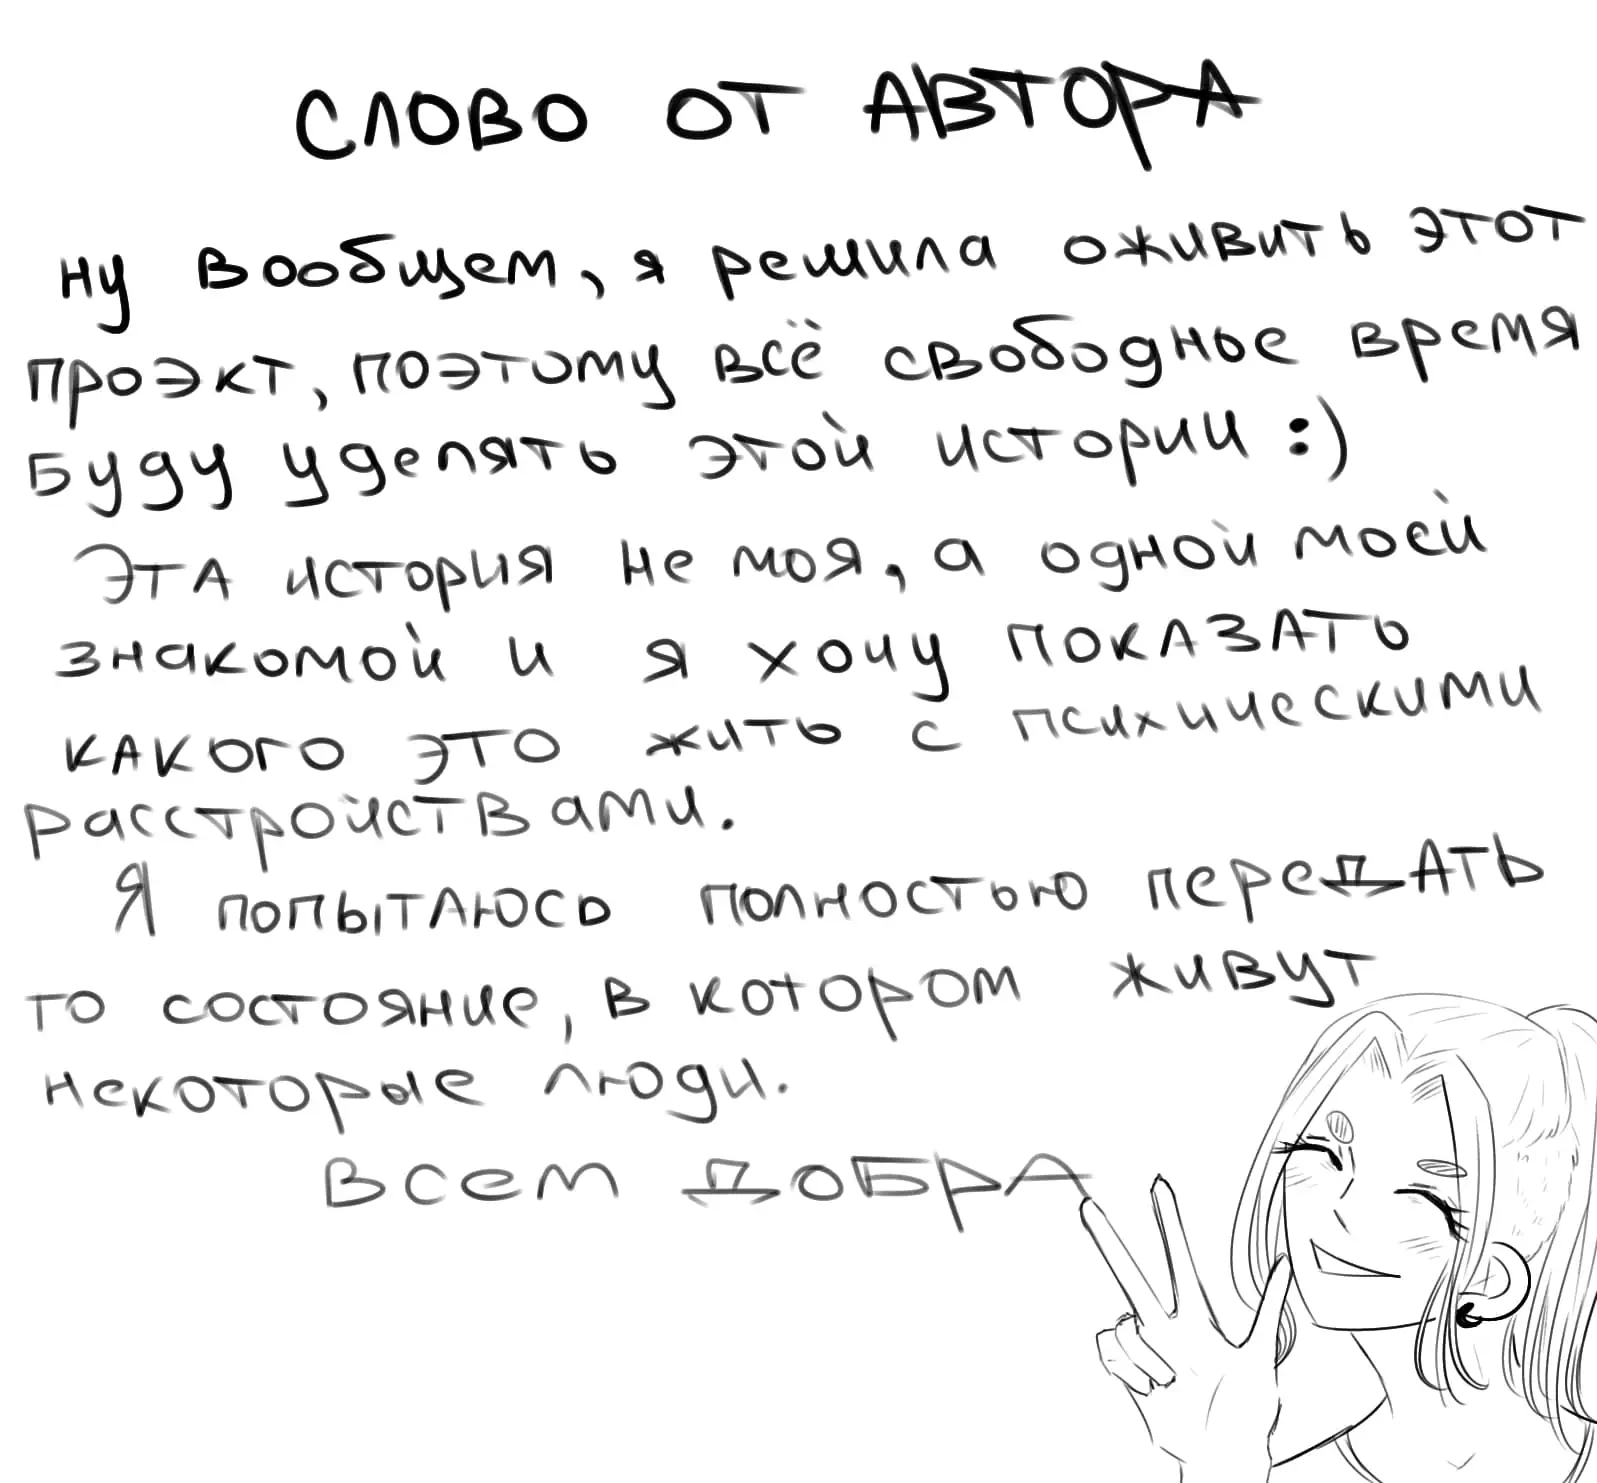 СЛОВО ОТ АВТОРА
ну вообщем, я решила оживить этот
проэкт, поэтому всё свободное время
буду уделять этой истории :)
Эта история не моя, а одной моей
знакомой и я хочу показать
какого это жить с психическими
расстройствами.
Я попытаюсь полностью передать
то состояние, в котором живут
некоторые люди.
Всем добра